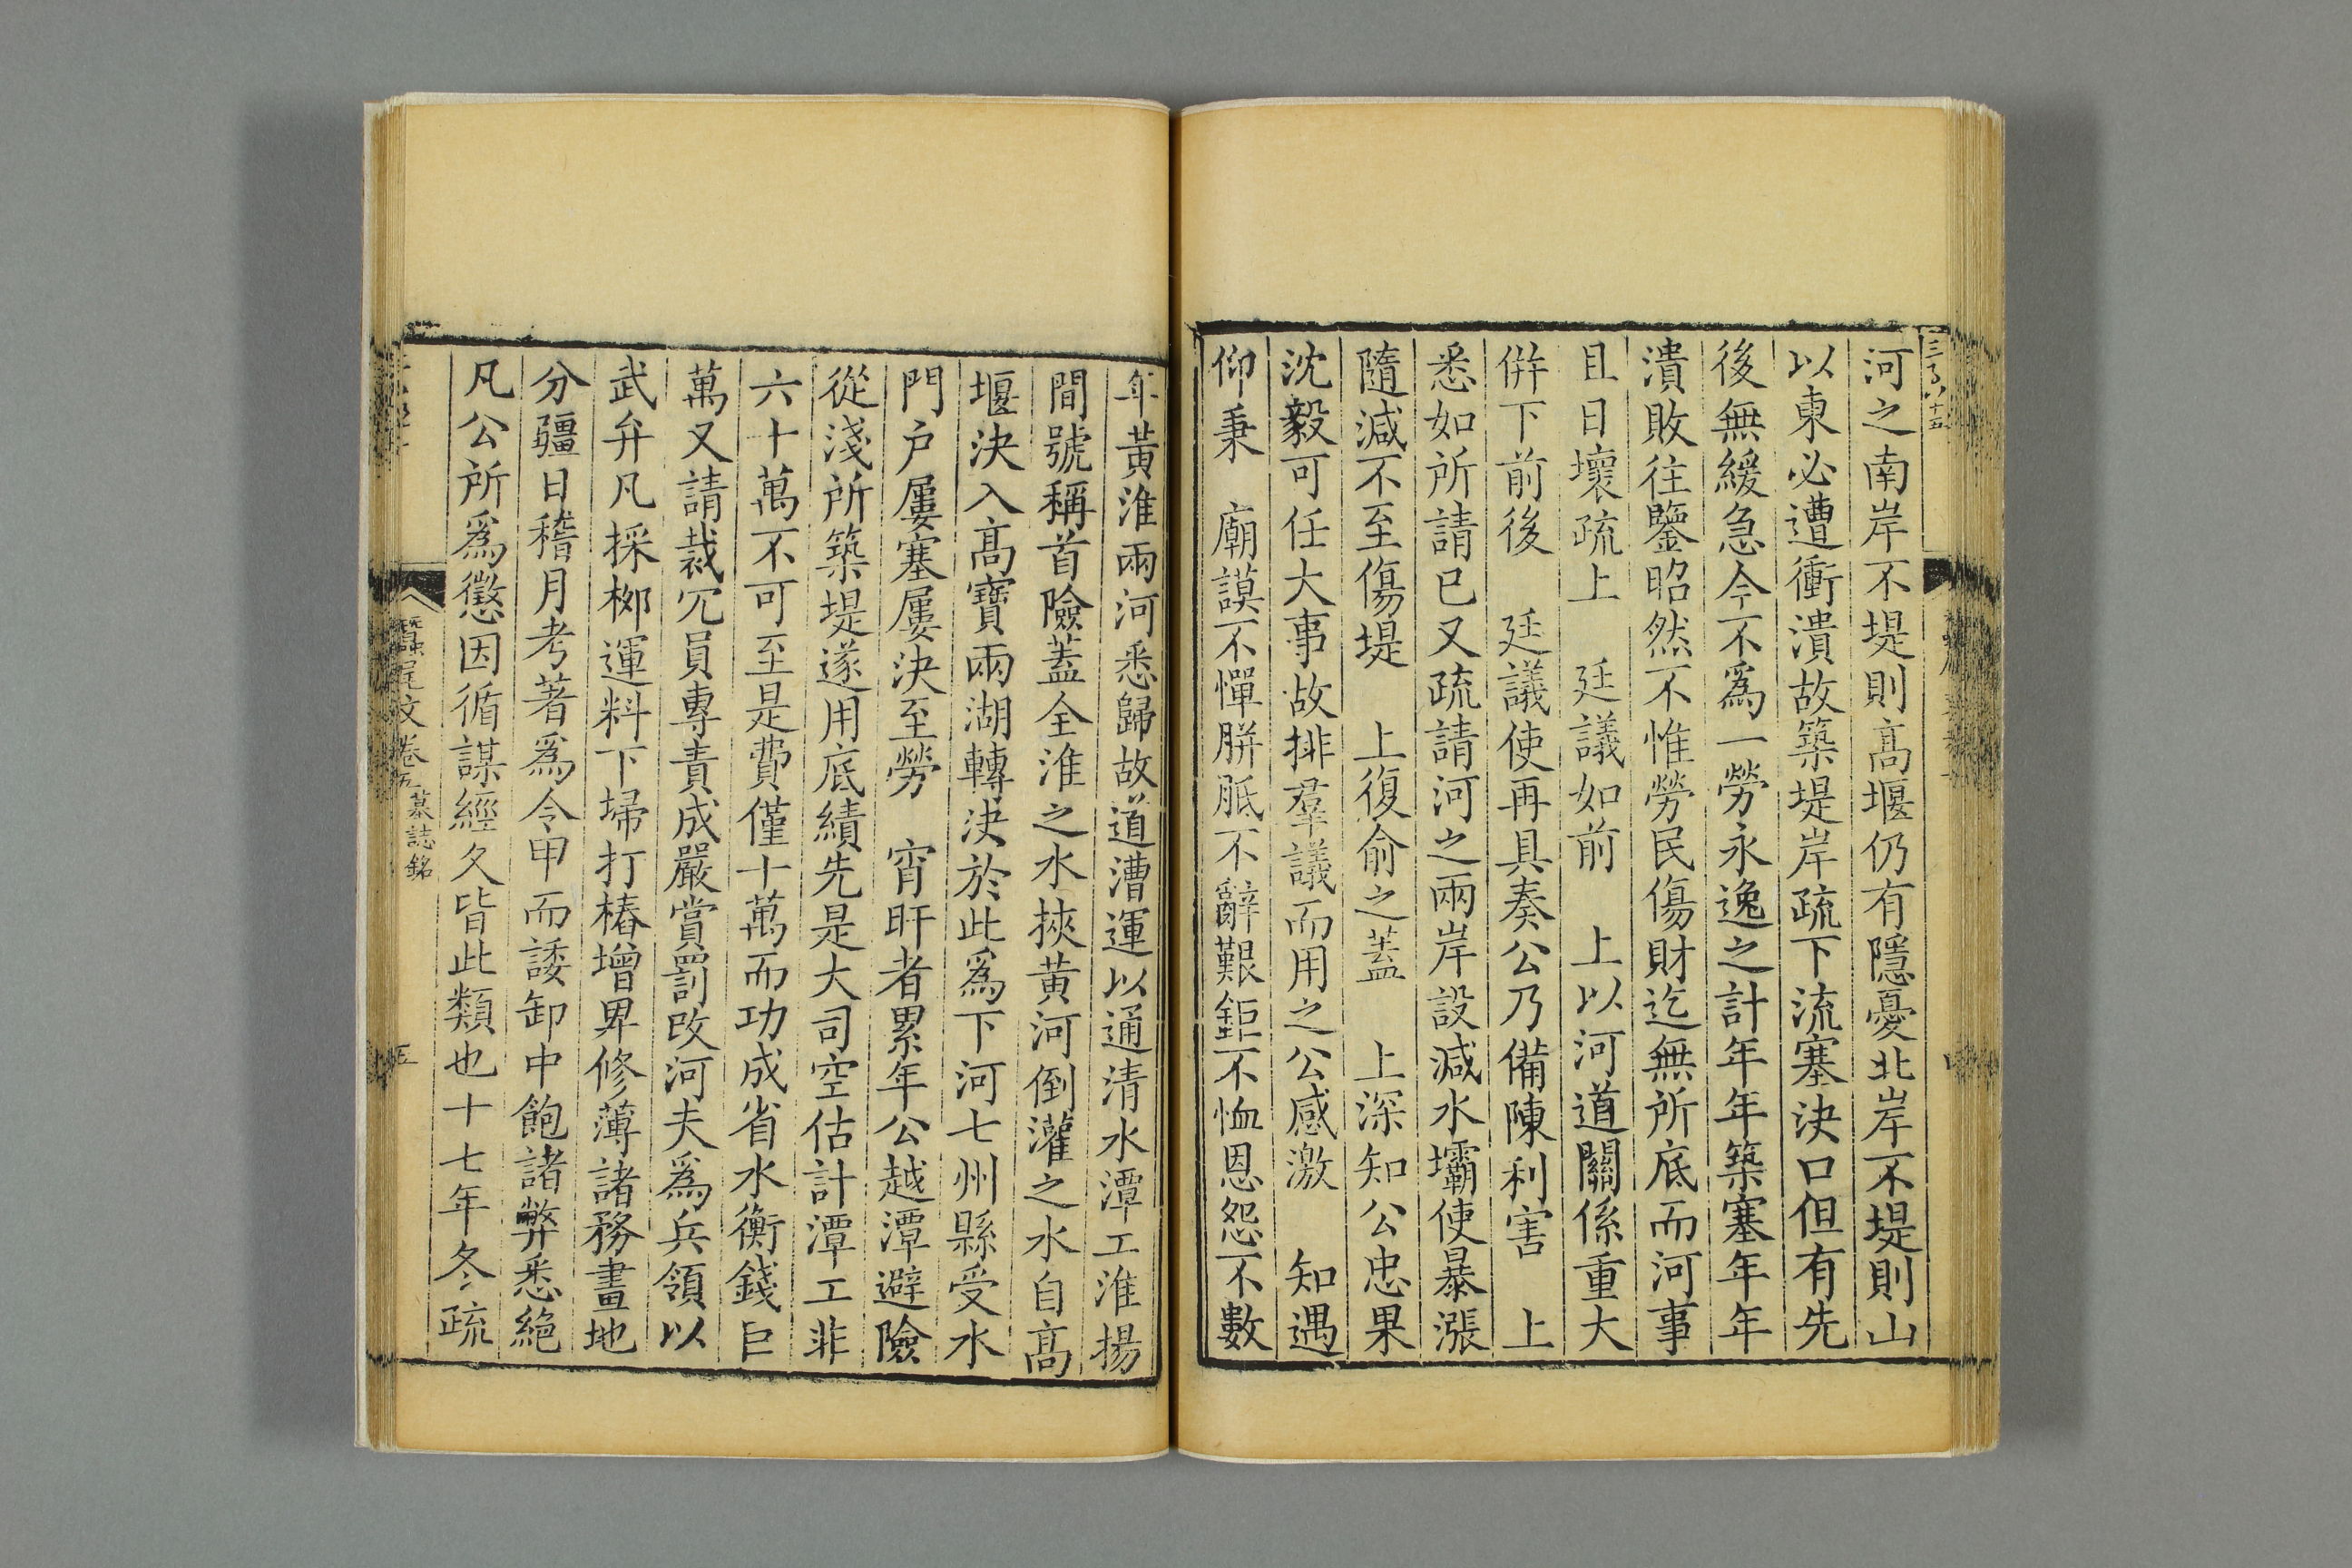 河之南岸不堤則高堰仍有隱憂北岸不堤則山
以東必遭衝潰故築堤岸疏下流塞決口但有先
後無緩急今不爲一勞永逸之計年年築塞年年
潰敗往鑒昭然不惟勞民傷財迄無所底而河事
且日壞疏上　廷議如前　上以河道關係重大
併下前後　廷議使再具奏公乃備陳利害　上
悉如所請已又疏請河之兩岸設減水壩使暴漲
隨減不至傷堤　上復俞之蓋　上深知公忠果
沈毅可任大事故排羣議而用之公感激　知遇
仰秉　廟謨不憚胼胝不辭艱鉅不恤恩怨不數
年黃淮兩河悉歸故道漕運以通清水潭工淮揚
間號稱首險蓋全淮之水挾黃河倒灌之水自高
堰決入高寶兩湖轉決於此爲下河七州縣受水
門户屢塞屢決至勞　宵旰者累年公越潭避險
從淺所築堤遂用底績先是大司空估計潭工非
六十萬不可至是費僅十萬而功成省水衡錢巨
萬又請裁冗員專責成嚴賞罰改河夫爲兵領以
武弁凡採栁運料下埽打樁增卑修薄諸務畫地
分疆日稽月考著爲令甲而諉卸中飽諸弊悉絕
凡公所爲懲因循謀經久皆此類也十七年冬疏
蠶尾文卷五　墓誌銘　五